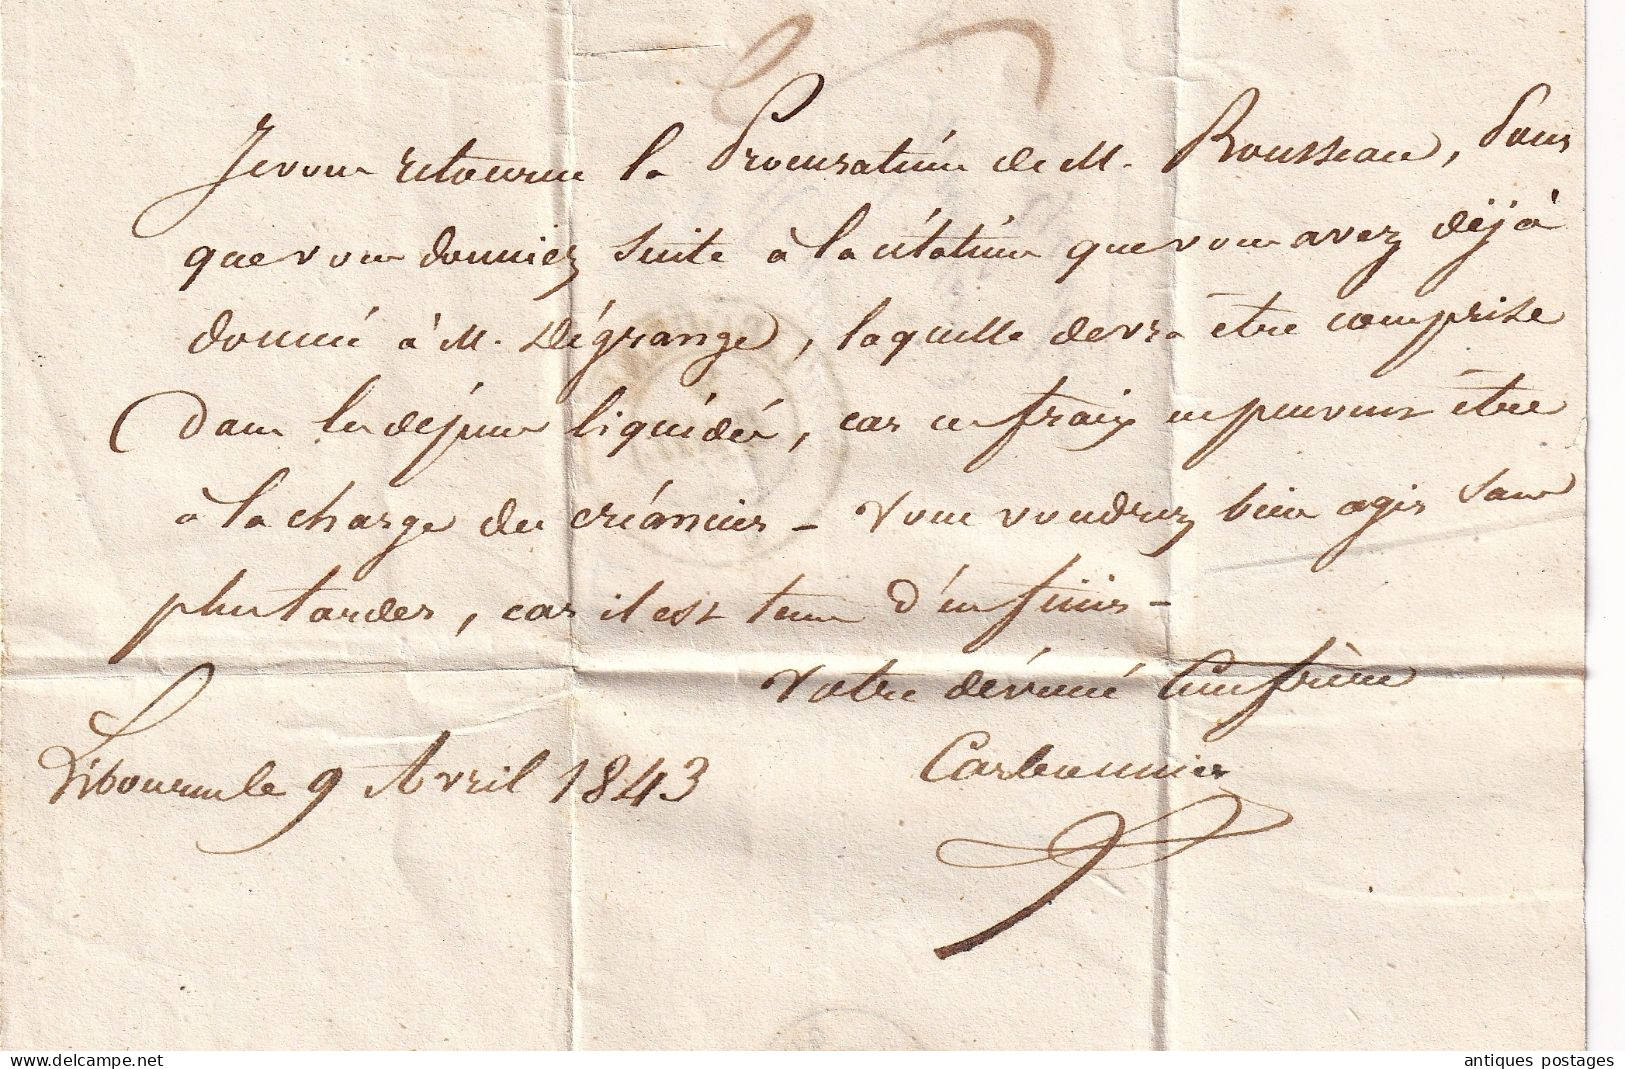 Je vous retourne la Procuration de M. Rousseau, Pour
que vous donniez suite à la citation que vous avez déjà
donné à M. Dégrange, laquelle devra être comprise
Dans les dépens liquidés, car ces frais ne peuvent être
à la charge des créanciers – Vous voudrez bien agir sans
plus tarder, car il est tems d'en finir –
Votre dévoué Confrère
Libourne le 9 Avril 1843
Carbonnier
delcampe.net
antiques postages